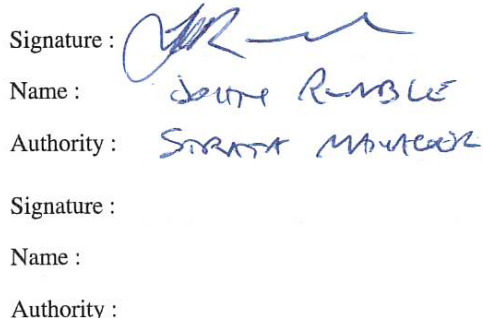 Signature :
Name : RUMBLE
Authority : STRATA MANAGER
Signature :
Name :
Authority :